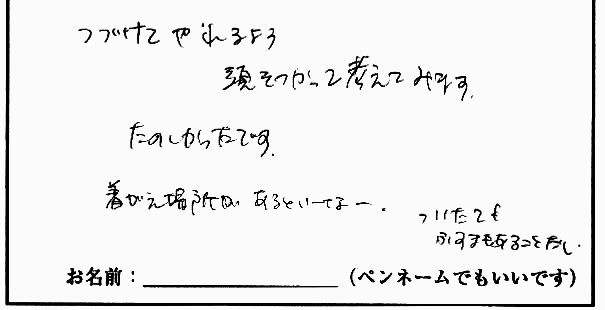 つづけてやれるよう
頭をつかって考えてみます。
たのしかったです。
着がえ場所が あるといいなー.
ついたても
お名前：　　　　　　（ペンネームでもいいです）